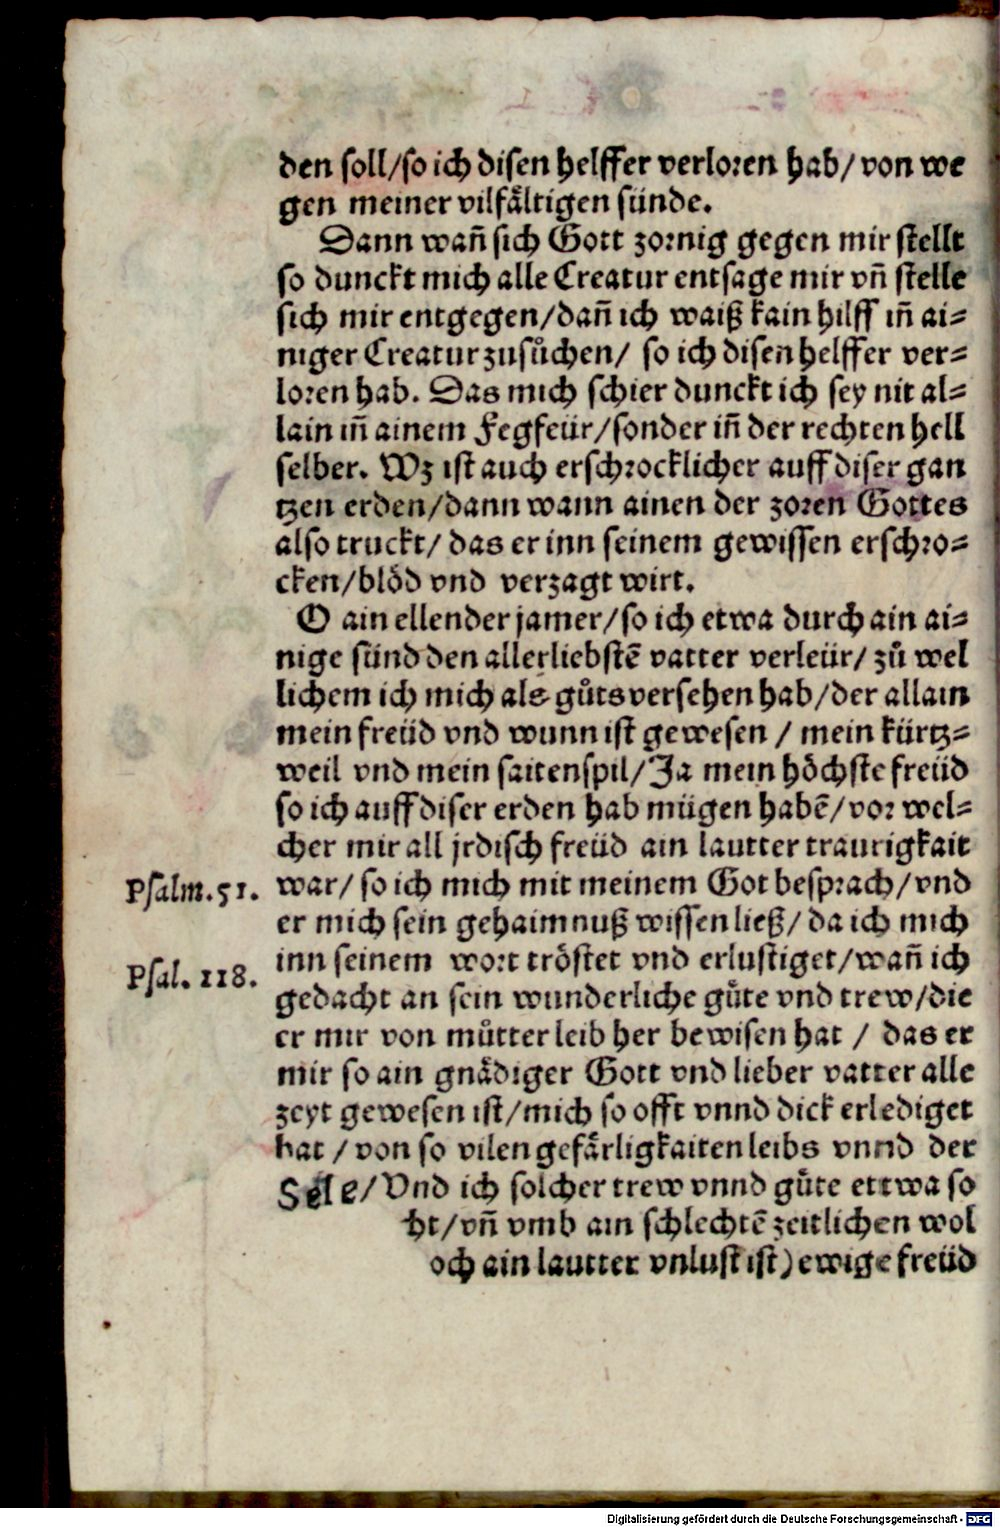 den soll/so ich disen helffer verloren hab/von we
gen meiner vilfåltigen sünde.
Dann wañ sich Gott zornig gegen mir stellt
so dunckt mich alle Creatur entsage mir vñ stelle
sich mir entgegen/dañ ich waiß kain hilff iñ ai=
niger Creatur zusůchen/ so ich disen helffer ver=
loren hab. Das mich schier dunckt ich sey nit al=
lain iñ ainem Fegfeür/sonder iñ der rechten hell
selber. Wz ist auch erschrocklicher auff diser gan
tzen erden/dann wann ainen der zoren Gottes
also truckt/ das er inn seinem gewissen erschro=
cken/blöd vnd verzagt wirt.
O ain ellender jamer/so ich etwa durch ain ai=
nige sünd den allerliebstẽ vatter verleür/ zů wel
lichem ich mich als gůts versehen hab/der allain
mein freüd vnd wunn ist gewesen / mein kürtz=
weil vnd mein saitenspil/Ja mein höchste freüd
so ich auff diser erden hab mügen habẽ/vor wel=
cher mir all jrdisch freüd ain lautter traurigkait
Psalm.51. war/ so ich mich mit meinem Got besprach/vnd
er mich sein gehaimnuß wissen ließ/ da ich mich
Psal. 118. inn seinem wort tröstet vnd erlustiget/wañ ich
gedacht an sein wunderliche gůte vnd trew/die
er mir von můtter leib her bewisen hat / das er
mir so ain gnådiger Gott vnd lieber vatter alle
zeyt gewesen ist/mich so offt vnnd dick erlediget
hat / von so vilen gefårligkaiten leibs vnnd der
Sele/Vnd ich solcher trew vnnd gůte ettwa so
ht/vñ vmb ain schlechtẽ zeitlichen wol
och ain lautter vnlust ist) ewige freüd
Digitalisierung gefördert durch die Deutsche Forschungsgemeinschaft - DFG